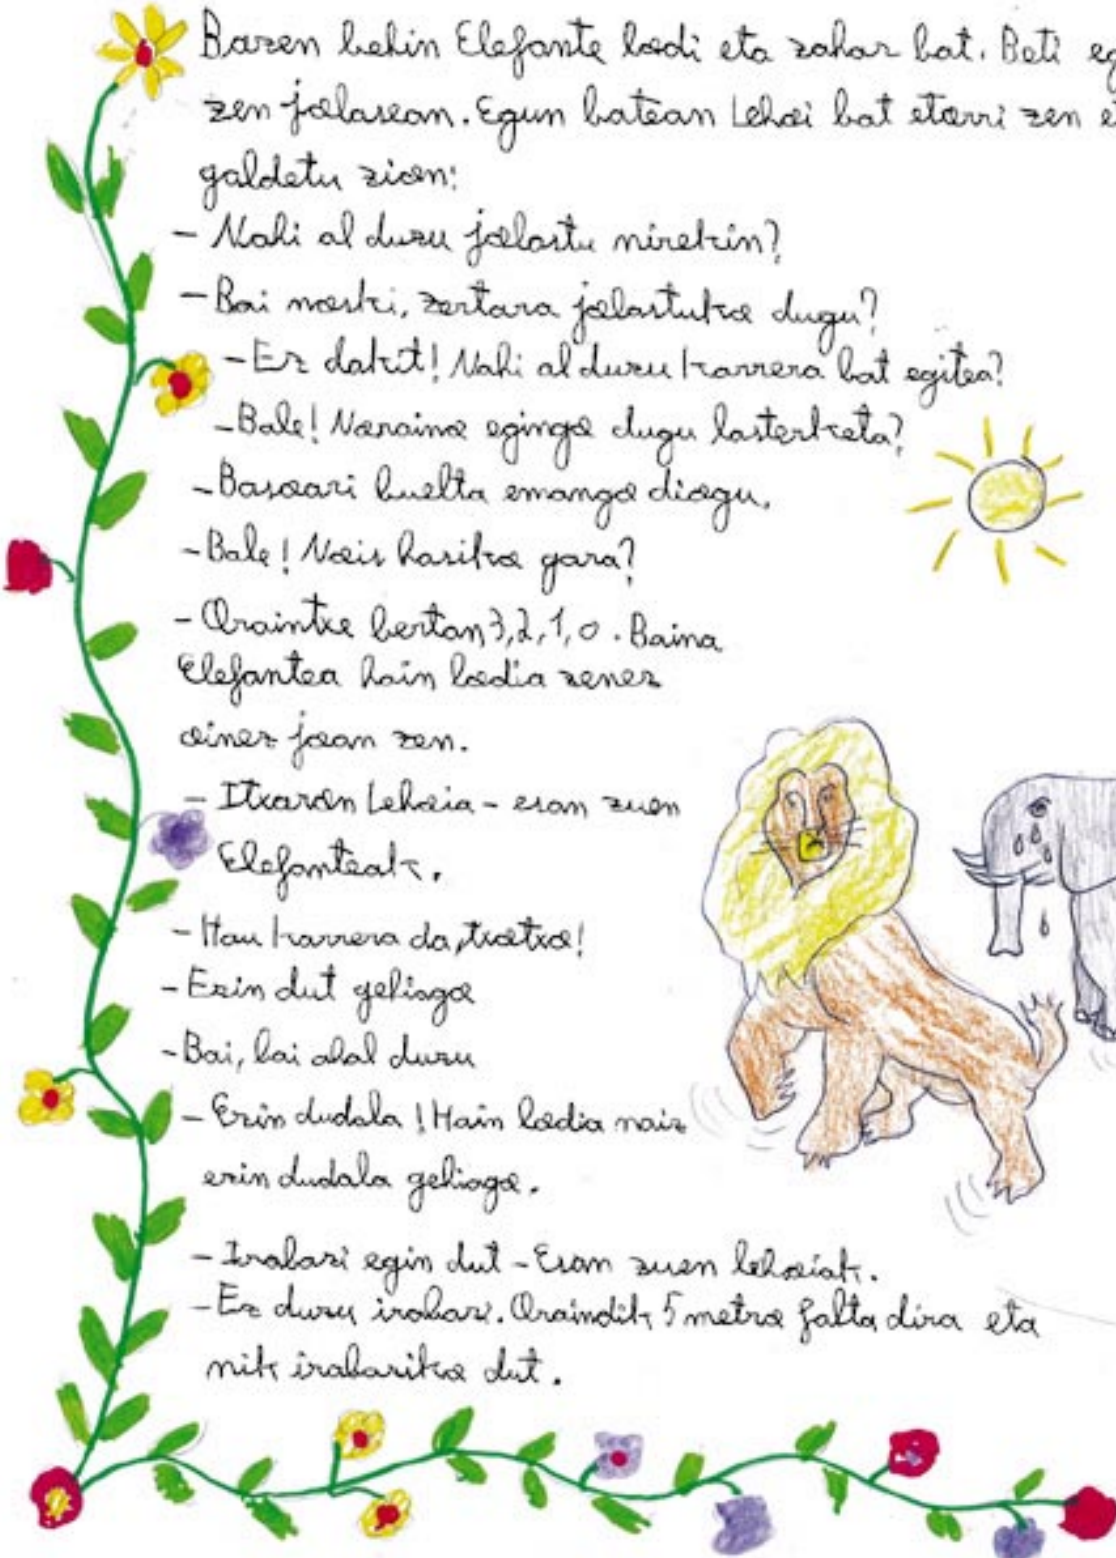 Bazen behin Elefante lodi eta zahar bat. Beti eg
zen jolasean. Egun batean Lehoi bat etorri zen e
galdetu zion:
- Nahi al duzu jolastu nirekin?
- Bai noski, zertara jolastuko dugu?
- Ez dakit! Nahi al duzu karrera bat egitea?
- Bale! Noraino egingo dugu lasterketa?
- Basoari buelta emango diogu.
- Bale! Nois hasiko gara?
- Oraintxe bertan 3,2,1,0. Baina
Elefantea hain lodia zenez
oinez joan zen.
- Itxaron Lehoia - esan zuen
Elefanteak.
- Hau karrera da, txotxo!
- Ezin dut gehiago
- Bai, bai ahal duzu
- Ezin dudala! Hain lodia naiz
ezin dudala gehiago.
- Irabazi egin dut - Esan zuen lehoiak.
- Ez duzu irabazi. Oraindik 5 metro falta dira eta
nik irabaziko dut.